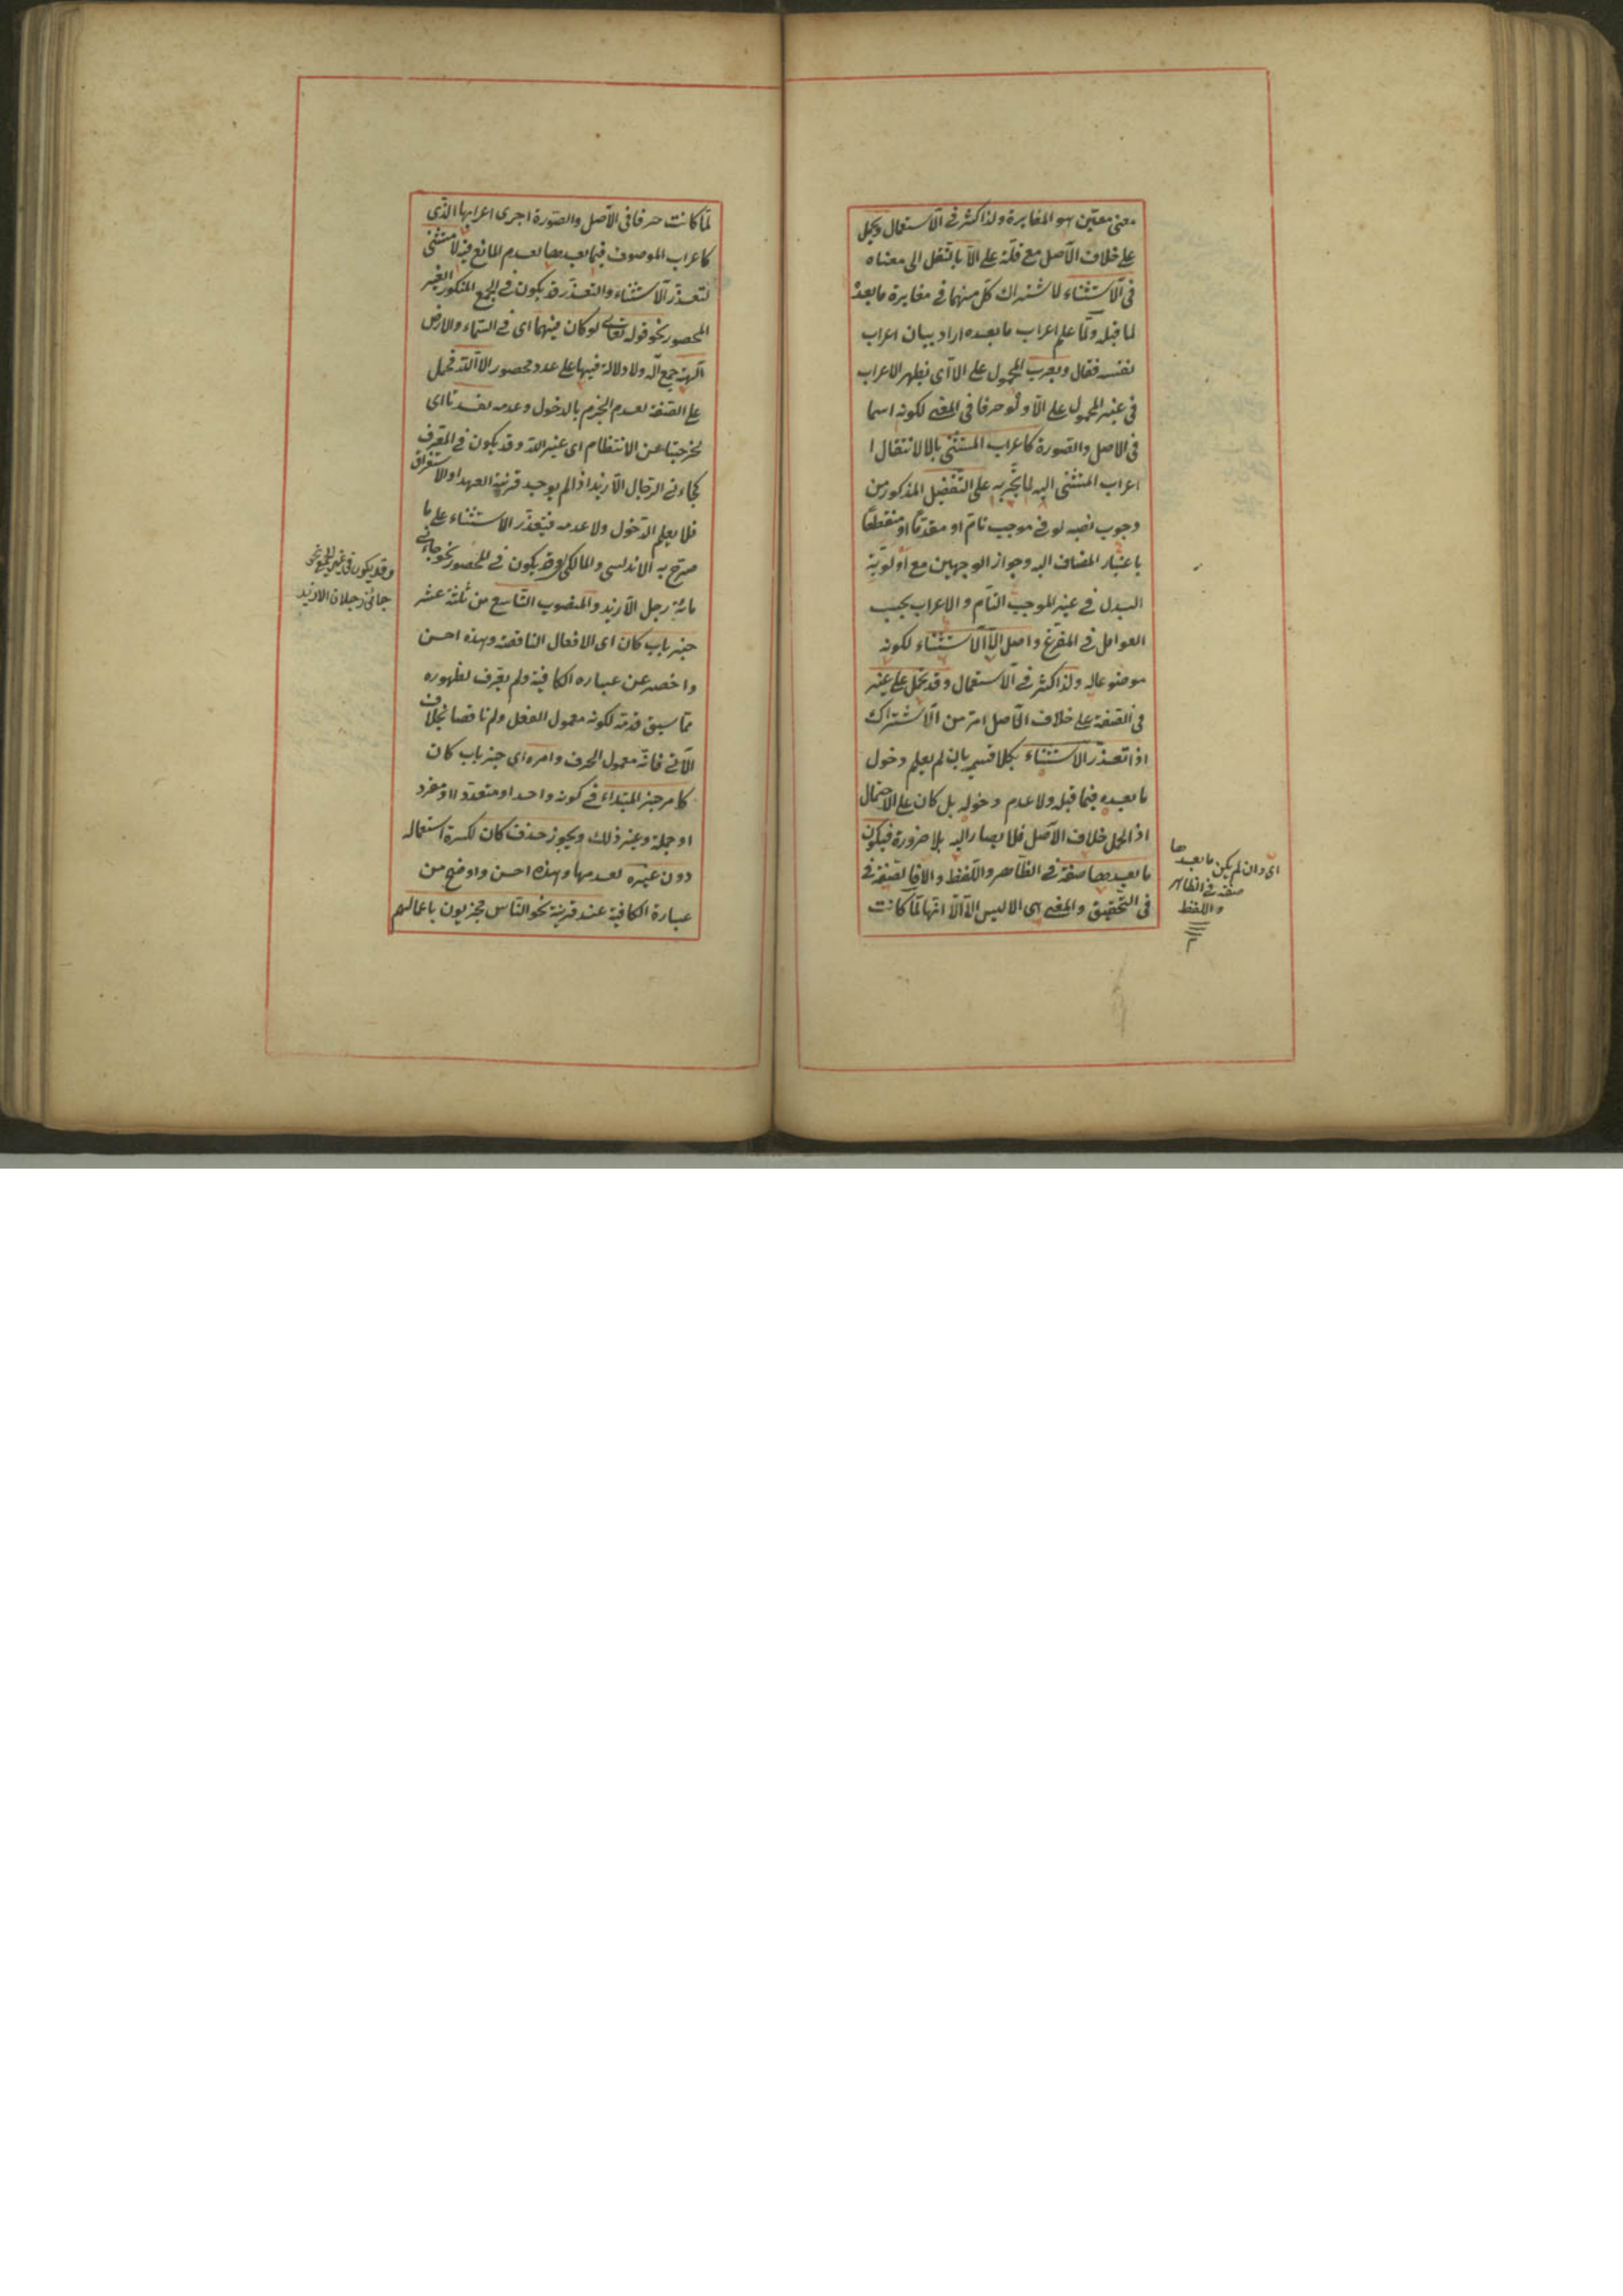 معنى معين هو المغايرة ولذا كثر فى الاستعمال ويحمل
على خلاف الاصل مع قلة على الا بالنقل الى معناه
فى الاستثناء لاشتراك كل منهما فى مغايرة ما بعده
لما قبله ولما علم اعراب ما بعده اراد بيان اعراب
نفسه فقال ويعرب المحمول على الا اى يظهر الاعراب
فى غير المحمول على الا ولو حرفا فى المعنى لكونه اسما
فى الاصل والصورة كاعراب المستثنى بالا لانتقال
اعراب المستثنى اليه لما نجر به على التفضيل المذكور من
وجوب نصبه لو فى موجب تام او مقدما او منقطعا
باعتبار المضاف اليه وجواز الوجهين مع اولوية
البدل فى غير الموجب التام والاعراب بحسب
العوامل فى المفرغ واصل الا الاستثناء لكونه
موضوعا له ولذا كثر فى الاستعمال وقد يحمل على غير
فى الصفة على خلاف الاصل امر من الاشتراك
اذا تعذر الاستثناء بكلا قسميه بان لم يعلم دخول
ما بعده فيما قبله ولا عدم دخوله بل كان على الاحتمال
اذ الحمل خلاف الاصل فلا يصار اليه بلا ضرورة فيكون
ما بعدها صفة فى الظاهر واللفظ والا فالصفة فى
فى التحقيق والمعنى هى الا ليس الا الا انها لما كانت
اى وان لم يكن ما بعدها
صفة فى الظاهر
واللفظ
لما كانت حرفا فى الاصل والصورة اجرى اعرابها الذى
كاعراب الموصوف فيما بعدها لعدم المانع فيه لا مستثنى
لتعذر الاستثناء والتعذر قد يكون فى الجمع المنكور الغير
المحصور نحو قوله تعالى لو كان فيهما اى فى السماء والارض
آلهة جمع اله ولا دلالة فيها على عدد محصور الا الله فحمل
على الصفة لعدم الجزم بالدخول وعدمه لفسدتا اى
لخرجتا عن الانتظام اى غير الله وقد يكون فى المعرف
كجاءنى الرجال الا زيد اذا لم يوجد قرينة العهد او الاستغراق
فلا يعلم الدخول ولا عدمه فيتعذر الاستثناء على ما
صرح به الاندلسى والمالكى وقد يكون فى المحصور نحو جاءنى
مائة رجل الا زيد والمنصوب التاسع من ثلثة عشر
خبر باب كان اى الافعال الناقصة وهذه احسن
واخصر عن عبارة الكافية ولم يعرف لظهوره
مما سبق قدمه لكونه معمول الفعل ولو ناقصا بخلاف
الآتى فانه معمول الحرف وامره اى خبر باب كان
كامر خبر المبتداء فى كونه واحدا او متعددا او مفرد
او جملة وغير ذلك ويجوز حذف كان لكثرة استعماله
دون غيره لعدمها وهذه احسن واوضح من
عبارة الكافية عند قرينة نحو الناس مجزيون باعمالهم
وقد يكون فى غير الجمع نحو
جائنى رجلان الا زيد